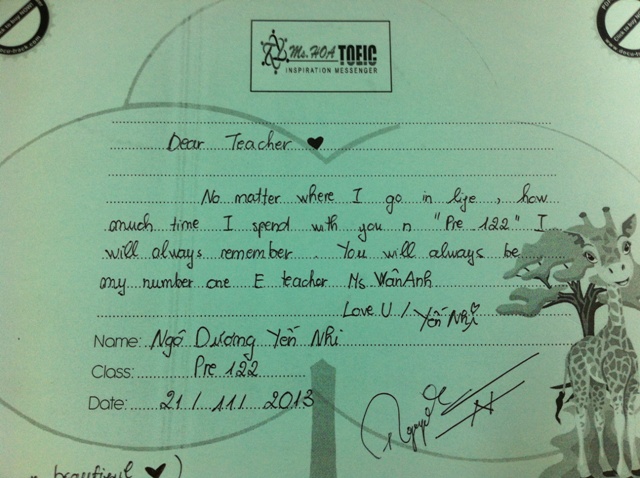 Ms. HOA TOEIC
INSPIRATION MESSENGER
Dear Teacher ♥
No matter where I go in life, how
much time I spend with you n "Pre 122" I
will always remember. You will always be
my number one E teacher Ms VânAnh
Love U / Yến Nhi
Name: Ngô Dương Yến Nhi
Class: Pre 122
Date: 21/11/2013
beautiful ♥)